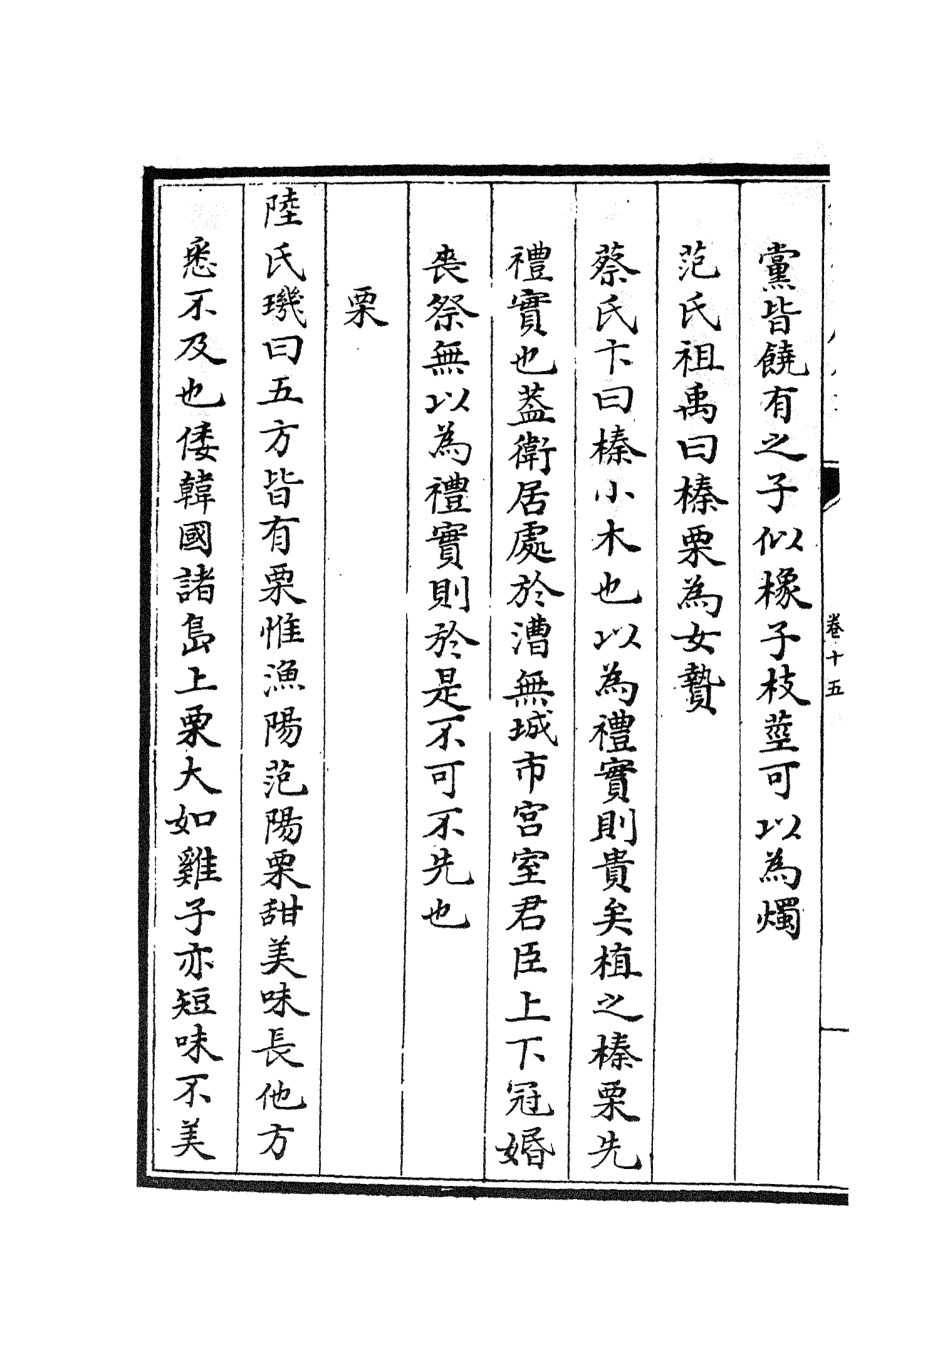 卷十五
黨皆饒有之子似橡子枝莖可以為燭
范氏祖禹曰榛栗為女贄
蔡氏卞曰榛小木也以為禮實則貴矣植之榛栗先
禮實也葢衛居處於漕無城市宮室君臣上下冠婚
喪祭無以為禮實則於是不可不先也
栗
陸氏璣曰五方皆有栗惟漁陽范陽栗甜美味長他方
悉不及也倭韓國諸島上栗大如雞子亦短味不美